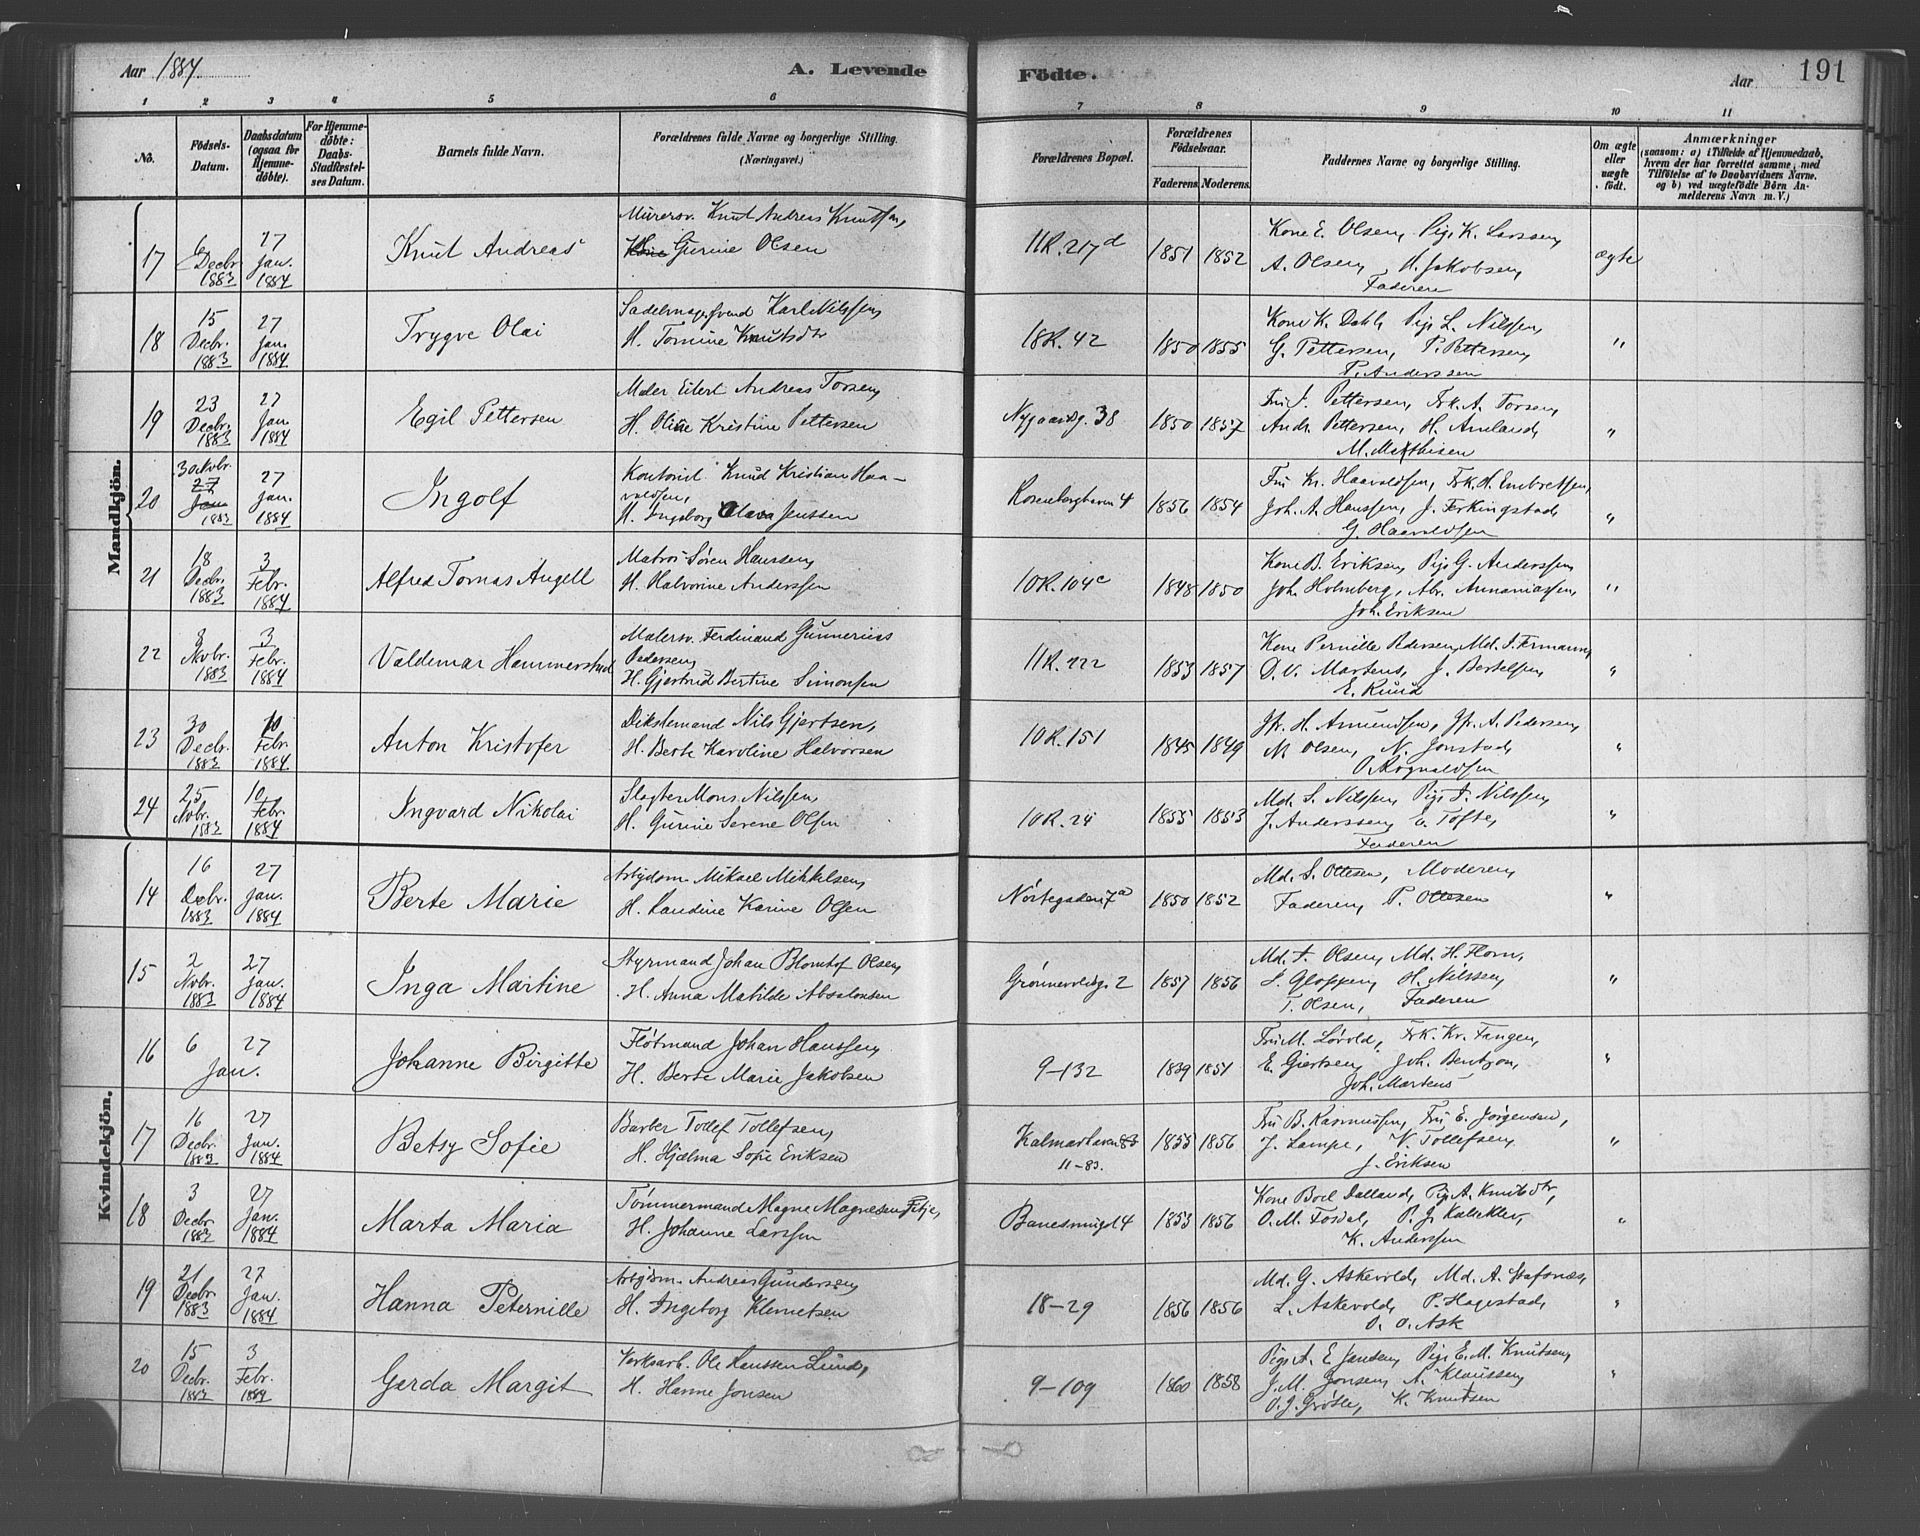 Aar 1884.
A. Levende Födte.
Aar 191
1 2 3 4 5 6 7 8 9 10 11
No.
Födsels-Datum.
Daabsdatum (ogsaa for Hjemme-döbte).
For Hjemme-döbte: Daabs-Stadfæstel-ses Datum.
Barnets fulde Navn.
Forældrenes fulde Navne og borgerlige Stilling.
(Næringsvei.)
Forældrenes Bopæl.
Forældrenes Födselsaar.
Faderens. Moderens.
Faddernes Navne og borgerlige Stilling.
Om ægte eller uægte födt.
Anmærkninger
(saasom: a) i Tilfælde af Hjemmedaab, hvem der har forrettet samme, med Tilföielse af to Daabsvidners Navne, og b) ved uægtefödte Börn An-melderens Navn m. V.)
Mandkjön.
17 6 Decbr. 1883 27 Jan. 1884 Knut Andreas
Murersv. Knut Andreas Knutsen,
H. Gurine Olsen
11R. 217d 1851 1852
Kone E. Olsen, Pige K. Larssen,
A. Olsen, H. Jakobsen,
Faderen
ægte
18 15 Decbr. 1883 27 Jan. 1884 Trygve Olai
Sadelmagersvend Karl Nilssen,
H. Tomine Knutsdtr
18R. 42 1850 1855
Kone K. Dahl, Pige L. Nilssen,
G. Pettersen, P. Pettersen,
P. Anderssen
"
19 23 Decbr. 1883 27 Jan. 1884 Egil Pettersen
Maler Eilert Andreas Torsen,
H. Oline Kristine Pettersen
Nygaardsg. 38 1850 1857
Fru J. Pettersen, Frk. A. Torsen,
Andr. Pettersen, H. Amland,
M. Mathisen
"
20 30 Novbr. 27 Jan 1883 27 Jan. 1884 Ingolf
Kontorist Knud Kristian Haa-
valdsen,
H. Ingeborg Olava Jenssen
Rosenberghaven 4 1856 1854
Fru Kr. Haavaldsen, Frk. H. Embretsen,
Joh. A. Hanssen, J. Ferkingstad,
G. Haavaldsen
"
21 18 Decbr. 1883 3 Febr. 1884 Alfred Tomas Angell
Matros Søren Hanssen,
H. Halvorine Anderssen
10R. 104c 1848 1850
Kone B. Eriksen, Pige G. Anderssen,
Joh. Holmberg, Abr. Annaniassen,
Joh. Eriksen
"
22 8 Novbr. 1883 3 Febr. 1884 Valdemar Hammerstad
Malersv. Ferdinand Gunnerius
Pedersen,
H. Gjertrud Bertine Simonsen
11R. 222 1853 1857
Kone Pernille Pedersen, Md. J. Formann,
D. V. Martens, J. Bertelsen,
E. Knud
"
23 30 Decbr. 1883 10 Febr. 1884 Anton Kristofer
Nils Gjertsen,
H. Berte Karoline Halvorsen
10R. 151 1845 1849
Jfr. H. Amundsen, Jfr. A. Pedersen,
N. Olsen, N. Jonstad,
O. Rognaldsen
"
24 25 Novbr. 1883 10 Febr. 1884 Ingvard Nikolai
Slagter Mons Nilssen,
H. Gurine Serene Olsen
10R. 24 1855 1853
Md. S. Nilssen, Pige A. Nilssen,
J. Anderssen, Tofte,
Faderen
"
Kvindekjön.
14 16 Decbr. 1883 27 Jan. 1884 Berte Marie
Arbejdsm. Mikael Mikkelsen,
H. Karine Olsen
Nøstegaden 7a 1850 1852
Md. S. Ottesen, Moderen,
Faderen, P. Ottesen
"
15 2 Novbr. 1883 27 Jan. 1884 Inga Martine
Styrmand Johan Blomhof Olsen,
H. Anna Matilde Absalonsen
Grønnevoldsg. 2 1857 1856
Md. A. Olsen, Md. H. Florn,
S. Gloppen, H. Nilssen,
T. Olsen, Faderen
"
16 6 27 Jan. Johanne Birgitte
Fløtmand Johan Hanssen,
H. Berte Marie Jakobsen
9-132 1839 1851
Fru M. Løvold, Frk. Kr. Fangen,
E. Giertsen, Joh. Bentzon,
Joh. Martens
"
17 16 Decbr. 1883 27 Jan. 1884 Betsy Sofie
Barber Tollef Tollefsen,
H. Hjælma Sofie Eriksen
Kalmarhaven
11-83.
1855 1856
Fru B. Rasmussen, Fru E. Jørgensen,
J. Lampe, N. Tollefsen,
J. Eriksen
"
18 3 Decbr. 1883 27 Jan. 1884 Marta Maria
Tømmermand Magne Magnesen Fitje,
H. Johanne Larssen
Banesmuget 4 1853 1856
Kone Boel Dalland, Pige A. Knutsdtr,
O. M. Fosdal, P. J. Kalleklev,
K. Anderssen
"
19 21 Decbr. 1883 27 Jan. 1884 Hanna Peternille
Arbejdsm. Andreas Gundersen,
H. Ingeborg Klemetsen
18-29 1856 1856
Md. G. Askevold, Md. A. Stafsnes,
L. Askevold, P. Hagestad,
O. O. Ask
"
20 15 Decbr. 1883 3 Febr. 1884 Gerda Margit
Verksarb. Ole Hanssen Lund,
H. Hanne Jonsen
9-109 1860 1858
Pige A. E. Jansen, Pige E. M. Knutsen,
J. M. Jonsen, A. Klaussen,
O. J. Grøtle, K. Knutsen
"